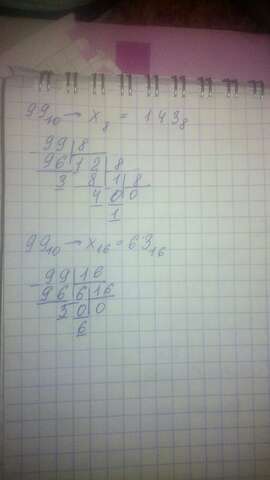 99₁₀ → x₈ = 143₈
- 99 | 8
96 | 12 | 8
3 | 8 | 1 | 8
4 | 0 | 0
1
99₁₀ → x₁₆ = 63₁₆
- 99 | 16
96 | 6 | 16
3 | 0 | 0
6